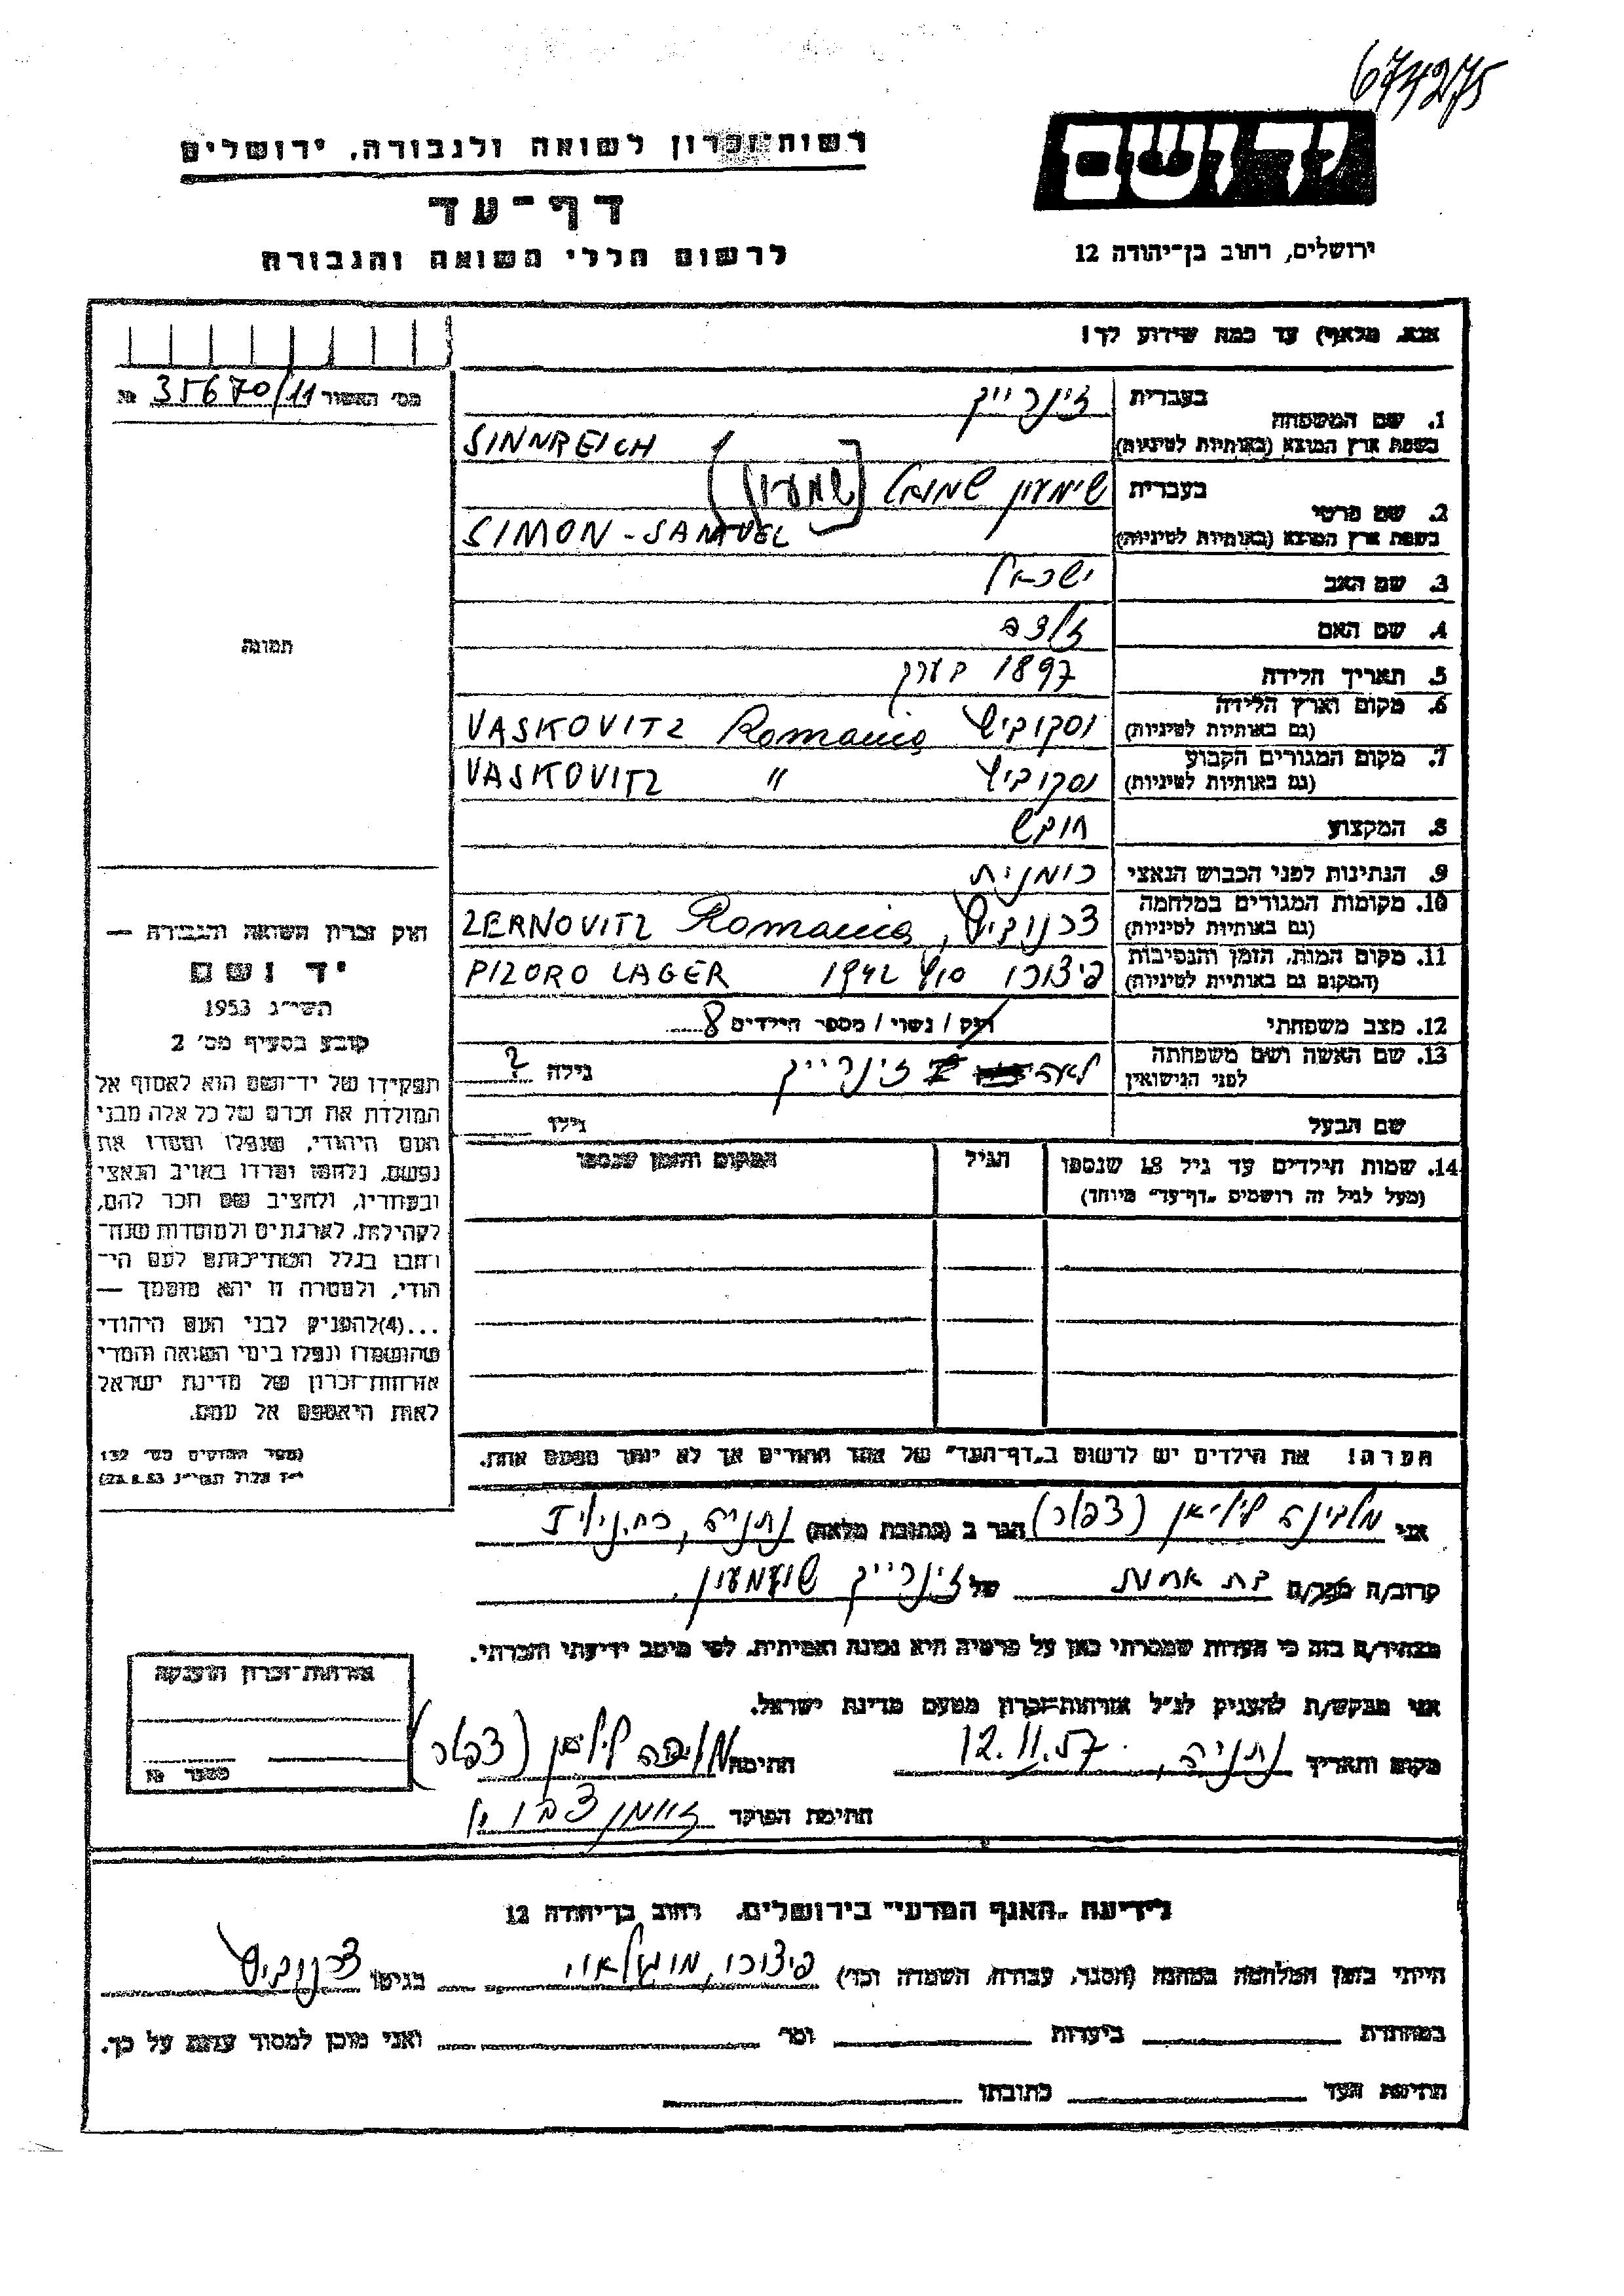 674275
רשות־זכרון לשואה ולגבורה, ירושלים
יד ושם
דף־עד
לרשום חללי השואה והגבורה
ירושלים, רחוב בן־יהודה 12
אנא, מלא(י) עד כמה שידוע לך!
מס' האשור 35670/11 №
1. שם המשפחה
בעברית זינרייך
בשפת ארץ המוצא (באותיות לטיניות) SINNREICH
2. שם פרטי
בעברית שימעון שמואל (שמעון)
בשפת ארץ המוצא (באותיות לטיניות) SIMON-SAMUEL
3. שם האב ישראל
4. שם האם
5. תאריך הלידה 1897 בערך
6. מקום וארץ הלידה
(גם באותיות לטיניות) וסקוביץ Romania VASKOVITZ
7. מקום המגורים הקבוע
(גם באותיות לטיניות) וסקוביץ " VASKOVITZ
8. המקצוע חובש
9. הנתינות לפני הכבוש הנאצי רומנית
10. מקומות המגורים במלחמה
(גם באותיות לטיניות) צרנוביץ, Romania ZERNOVITZ
11. מקום המות, הזמן והנסיבות
(המקום גם באותיות לטיניות) פיצורו סוף 1942 PIZORO LAGER
12. מצב משפחתי רווק / נשוי / מספר הילדים 8
13. שם האשה ושם משפחתה
לפני הנישואין לאה זינרייך גילה ?
שם הבעל גילו
14. שמות הילדים עד גיל 18 שנספו
(מעל לגיל זה רושמים "דף־עד" מיוחד)
הגיל
המקום והזמן שנספו
תמונה
חוק זכרון השואה והגבורה —
יד ושם
תשי״ג 1953
קובע בסעיף מס' 2
תפקידו של יד־ושם הוא לאסוף אל
המולדת את זכרם של כל אלה מבני
העם היהודי, שנפלו ומסרו את
נפשם, נלחמו ומרדו באויב הנאצי
ובעוזריו, ולהציב שם וזכר להם,
לקהילות, לארגונים ולמוסדות שנח־
רבו בגלל השתייכותם לעם הי־
הודי, ולמטרה זו יהא מוסמך —
...(4)להעניק לבני העם היהודי
שהושמדו ונפלו בימי השואה והמרי
אזרחות־זכרון של מדינת ישראל
לאות היאספם אל עמם.
(ספר החוקים מס' 132
י״ז אלול תשי״ג 28.8.53)
הערה! את הילדים יש לרשום ב„דף־העד" של אחד ההורים אך לא יותר מפעם אחת.
אני מלבינה ליליאן (צפלר) הגר ב (כתובת מלאה) נתניה,
קרוב/ה מכר/ה בת אחות של זינרייך שמעון
מצהיר/ה בזה כי העדות שמסרתי כאן על פרטיה היא נכונה ואמיתית, לפי מיטב ידיעתי והכרתי.
אני מבקש/ת להעניק לנ״ל אזרחות־זכרון מטעם מדינת ישראל.
מקום ותאריך נתניה, 12.11.57 חתימה ליליאן (צפלר)
חתימת הפוקד
אזרחות־זכרון הוענקה
מספר №
לידיעת „האגף המדעי" בירושלים, רחוב בן־יהודה 12
הייתי בזמן המלחמה במחנה (הסגר, עבודה, השמדה וכד') פיצורו, בגיטו צרנוביץ
במחתרת ביערות וכו' ואני מוכן למסור עדות על כך.
חתימת העד כתובתו